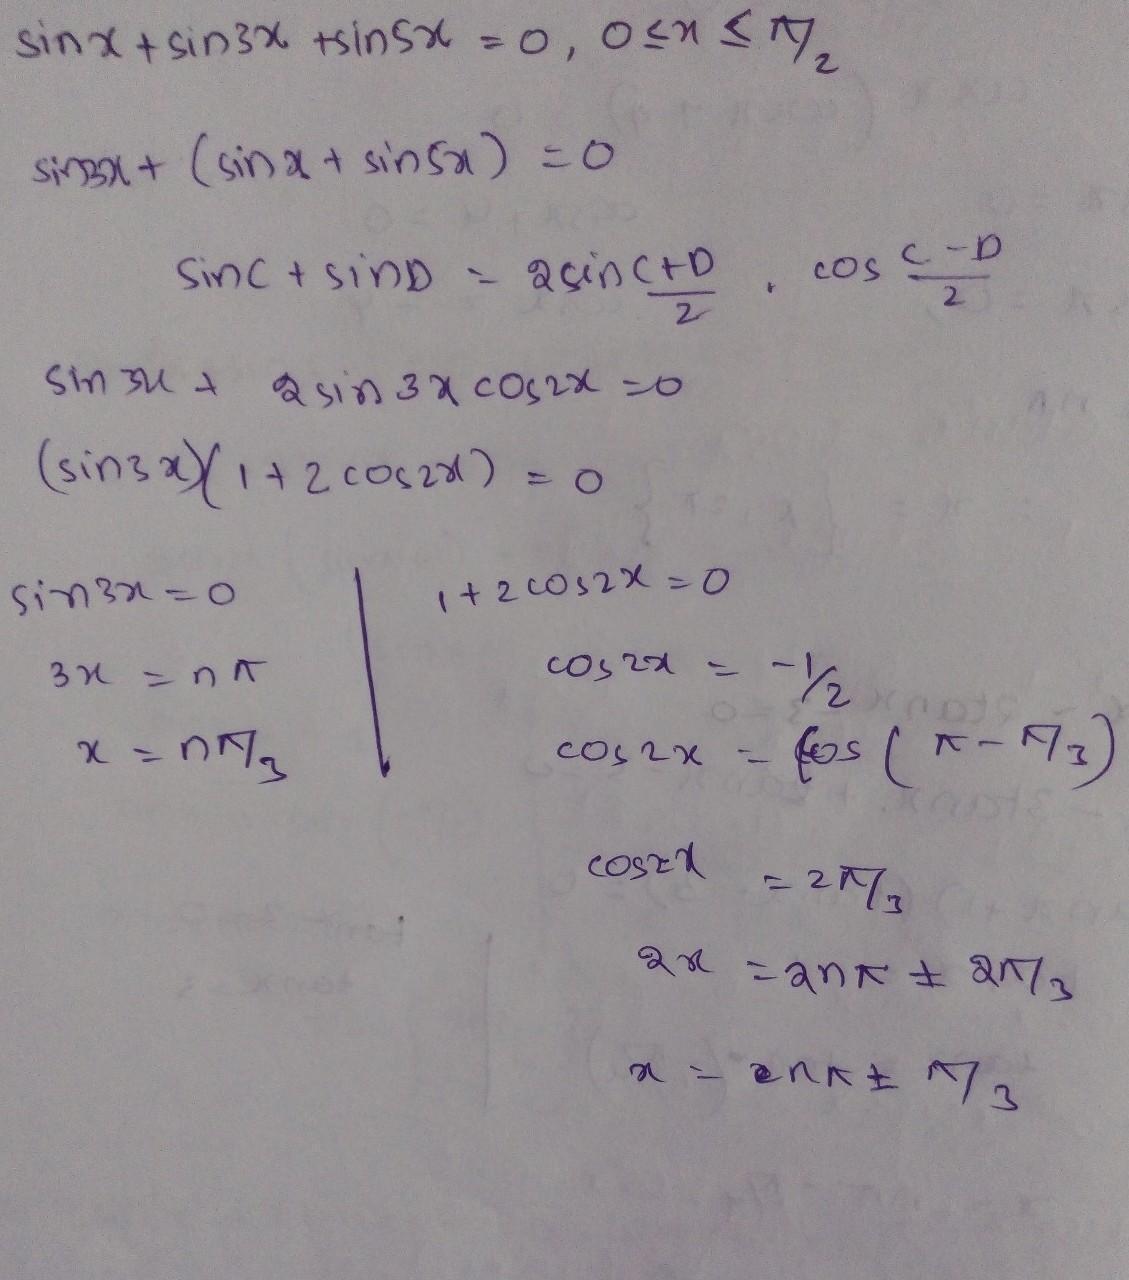 sinx + sin3x + sin5x = 0, 0 ≤ x ≤ π/2
sin3x + (sinx + sin5x) = 0
sinC + sinD = 2sin C+D/2 . cos C-D/2
sin3x + 2sin3x cos2x = 0
(sin3x)(1 + 2cos2x) = 0
sin3x = 0
3x = nπ
x = nπ/3
1 + 2cos2x = 0
cos2x = -1/2
cos2x = cos(π - π/3)
cos2x = 2π/3
2x = 2nπ ± 2π/3
x = nπ ± π/3